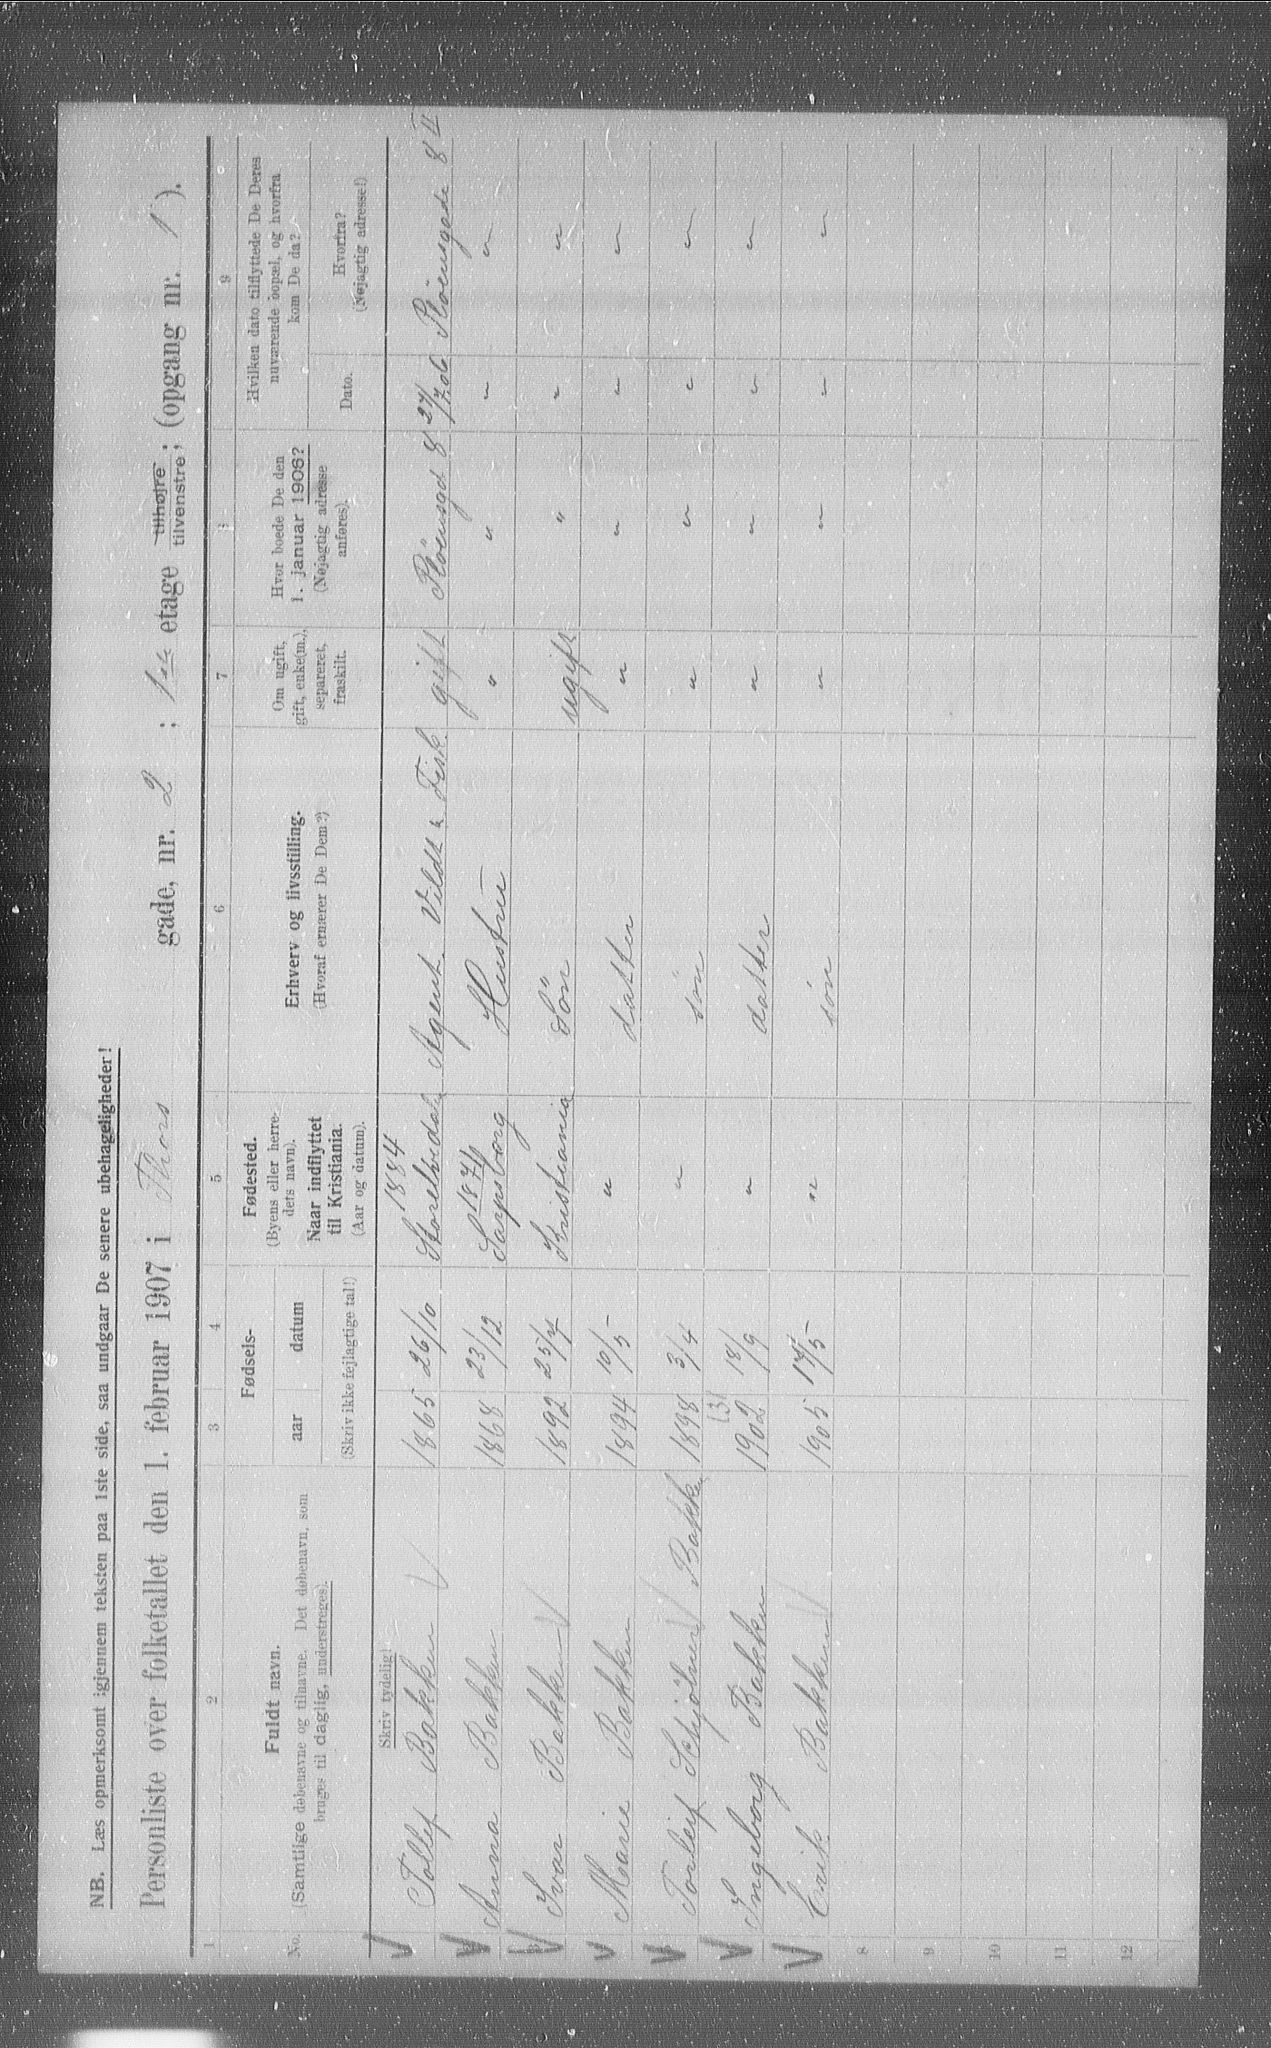 NB. Læs opmerksomt igjennem teksten paa 1ste side, saa undgaar De senere ubehageligheder!
Personliste over folketallet den 1. februar 1907 i Thors gade, nr. 2 ; 1ste etage tilhøjre tilvenstre; (opgang nr. 1 ).
1 2 3 4 5 6 7 8 9
No.
Fuldt navn.
(Samtlige døbenavne og tilnavne. Det døbenavn, som
bruges til daglig, understreges).
Fødsels-
aar datum
(Skriv ikke fejlagtige tal!)
Fødested.
(Byens eller herre-
dets navn).
Naar indflyttet
til Kristiania.
(Aar og datum).
Erhverv og livsstilling.
(Hvoraf ernærer De Dem?)
Om ugift,
gift, enke(m.),
separeret,
fraskilt.
Hvor boede De den
1. januar 1906?
(Nøjagtig adresse
anføres).
Hvilken dato tilflyttede De Deres
nuværende bopæl, og hvorfra
kom De da?
Dato.
Hvorfra?
(Nøjagtig adresse!)
Skriv tydelig!
1884
Tollef Bakken 1865 26/10 Storelvedal Agent Vildt & Fisk gift Pløensgd 8 27/7 06 Pløensgade 8 II
1874
Anna Bakken 1868 23/12 Sarpsborg Hustru " " " "
Ivar Bakken 1892 25/4 Kristiania Søn ugift " " "
Marie Bakken 1894 10/5 " datter " " " "
Torleif Bakken 1898 3/4 " søn " " " "
(3)
Ingeborg Bakken 1902 18/9 " datter " " " "
Erik Bakken 1905 14/5 " søn " " " "
8
9
10
11
12